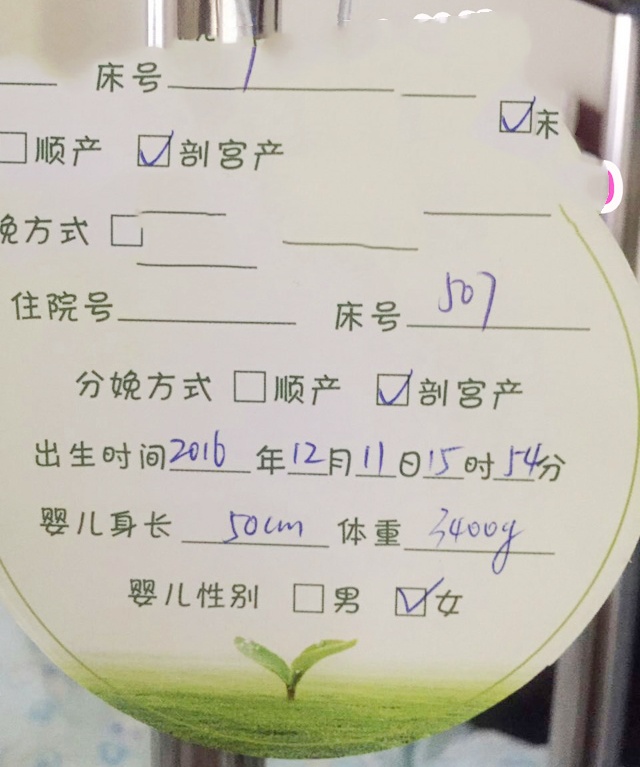 床号
☑
□顺产 ☑剖宫产
方式 □
住院号 床号 507
分娩方式 □顺产 ☑剖宫产
出生时间2016年12月11日15时54分
婴儿身长 50cm 体重 3400g
婴儿性别 □男 ☑女